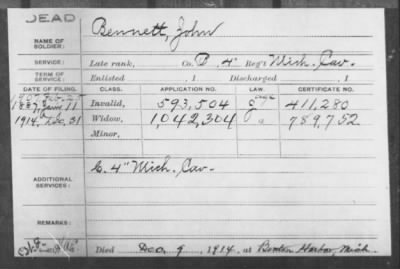 DEAD
NAME OF SOLDIER:
Bennett, John
SERVICE:
Late rank, Co. B, 4" Reg't Mich. Cav.
TERM OF SERVICE:
Enlisted , 1 Discharged , 1
DATE OF FILING. CLASS. APPLICATION NO. LAW. CERTIFICATE NO.
1887, 11 Invalid, 593,504 411,280
1914, Dec. 31 Widow, 1,042,304 789,752
Minor,
ADDITIONAL SERVICES:
C. 4" Mich. Cav.
REMARKS:
Died Dec. 9, 1914, at Benton Harbor, Mich.